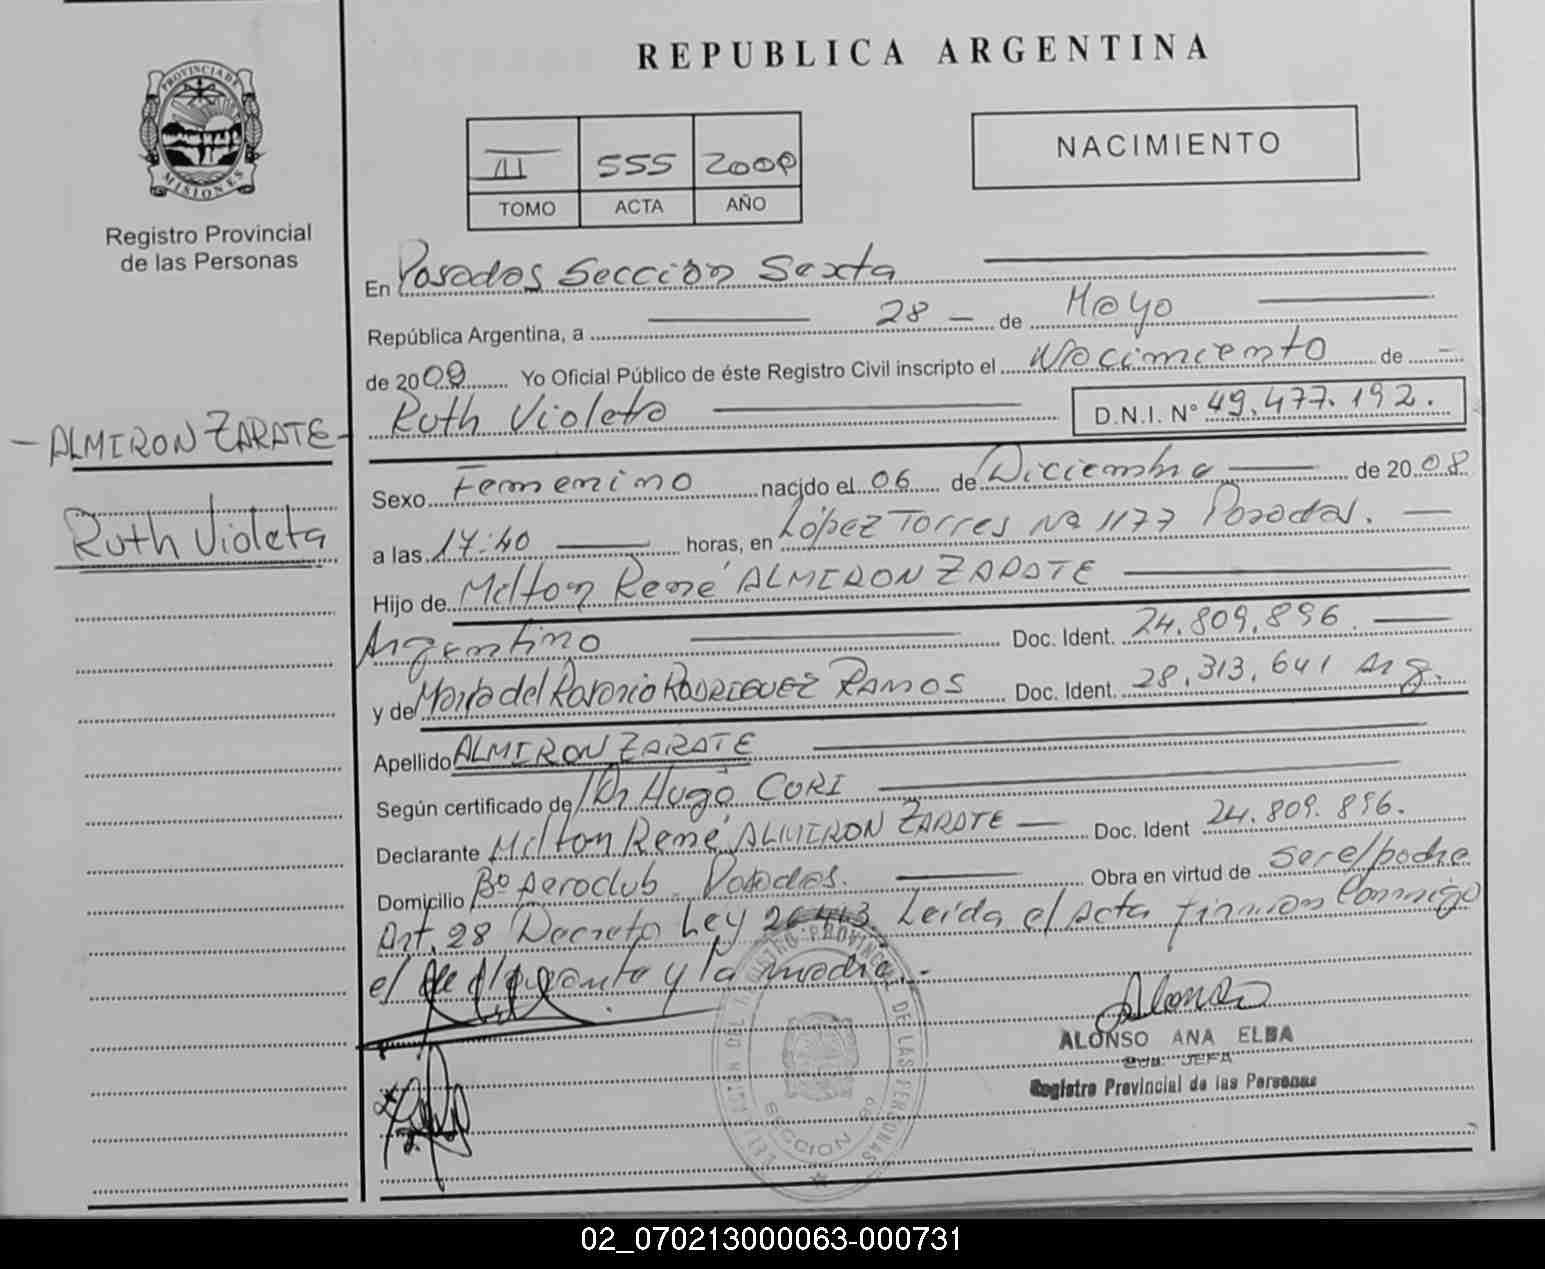 REPUBLICA ARGENTINA
PROVINCIA DE
MISIONES
Registro Provincial
de las Personas
III 555 2009
TOMO ACTA AÑO
NACIMIENTO
En Posadas Sección Sexta
República Argentina, a 28 - de Mayo
de 2009 Yo Oficial Público de éste Registro Civil inscripto el Nacimiento de -
Ruth Violeta D.N.I. N° 49.477.192.
- ALMIRON ZARATE -
Ruth Violeta
Sexo Femenino nacido el 06 de Diciembre de 2008
a las 17:40 horas, en López Torres Nº 1177 Posadas.
Hijo de Milton René ALMIRON ZARATE
Argentino Doc. Ident. 24.809.896.
y de María del Rosario RODRIGUEZ RAMOS Doc. Ident. 28.313.641 Arg.
Apellido ALMIRON ZARATE
Según certificado de Dr Hugo CORI
Declarante Milton René ALMIRON ZARATE Doc. Ident 24.809.896.
Domicilio Bº Aeroclub Posadas. Obra en virtud de ser el padre
Art. 28 Decreto Ley Leída el Acta firman conmigo
el y la madre.-
ALONSO ANA ELBA
Sub. JEFA
Registro Provincial de las Personas
REGISTRO PROVINCIAL DE LAS PERSONAS
SECCION 6º
02_070213000063-000731